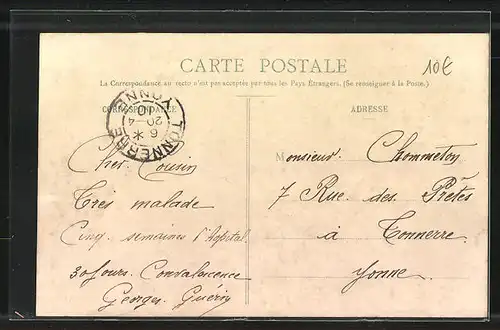 CARTE POSTALE
10€
La Correspondance au recto n'est pas acceptée par tous les Pays Étrangers. (Se renseigner à la Poste.)
CORRESPONDANCE
ADRESSE
TONNERRE
YONNE
6 *
20-4
Cher Cousin
Très malade
Cinq semaines l'hopital
30 Jours Convalescence
Georges Guérin
Monsieur Chommeton
7 Rue des Prêtes
à Tonnerre
Yonne